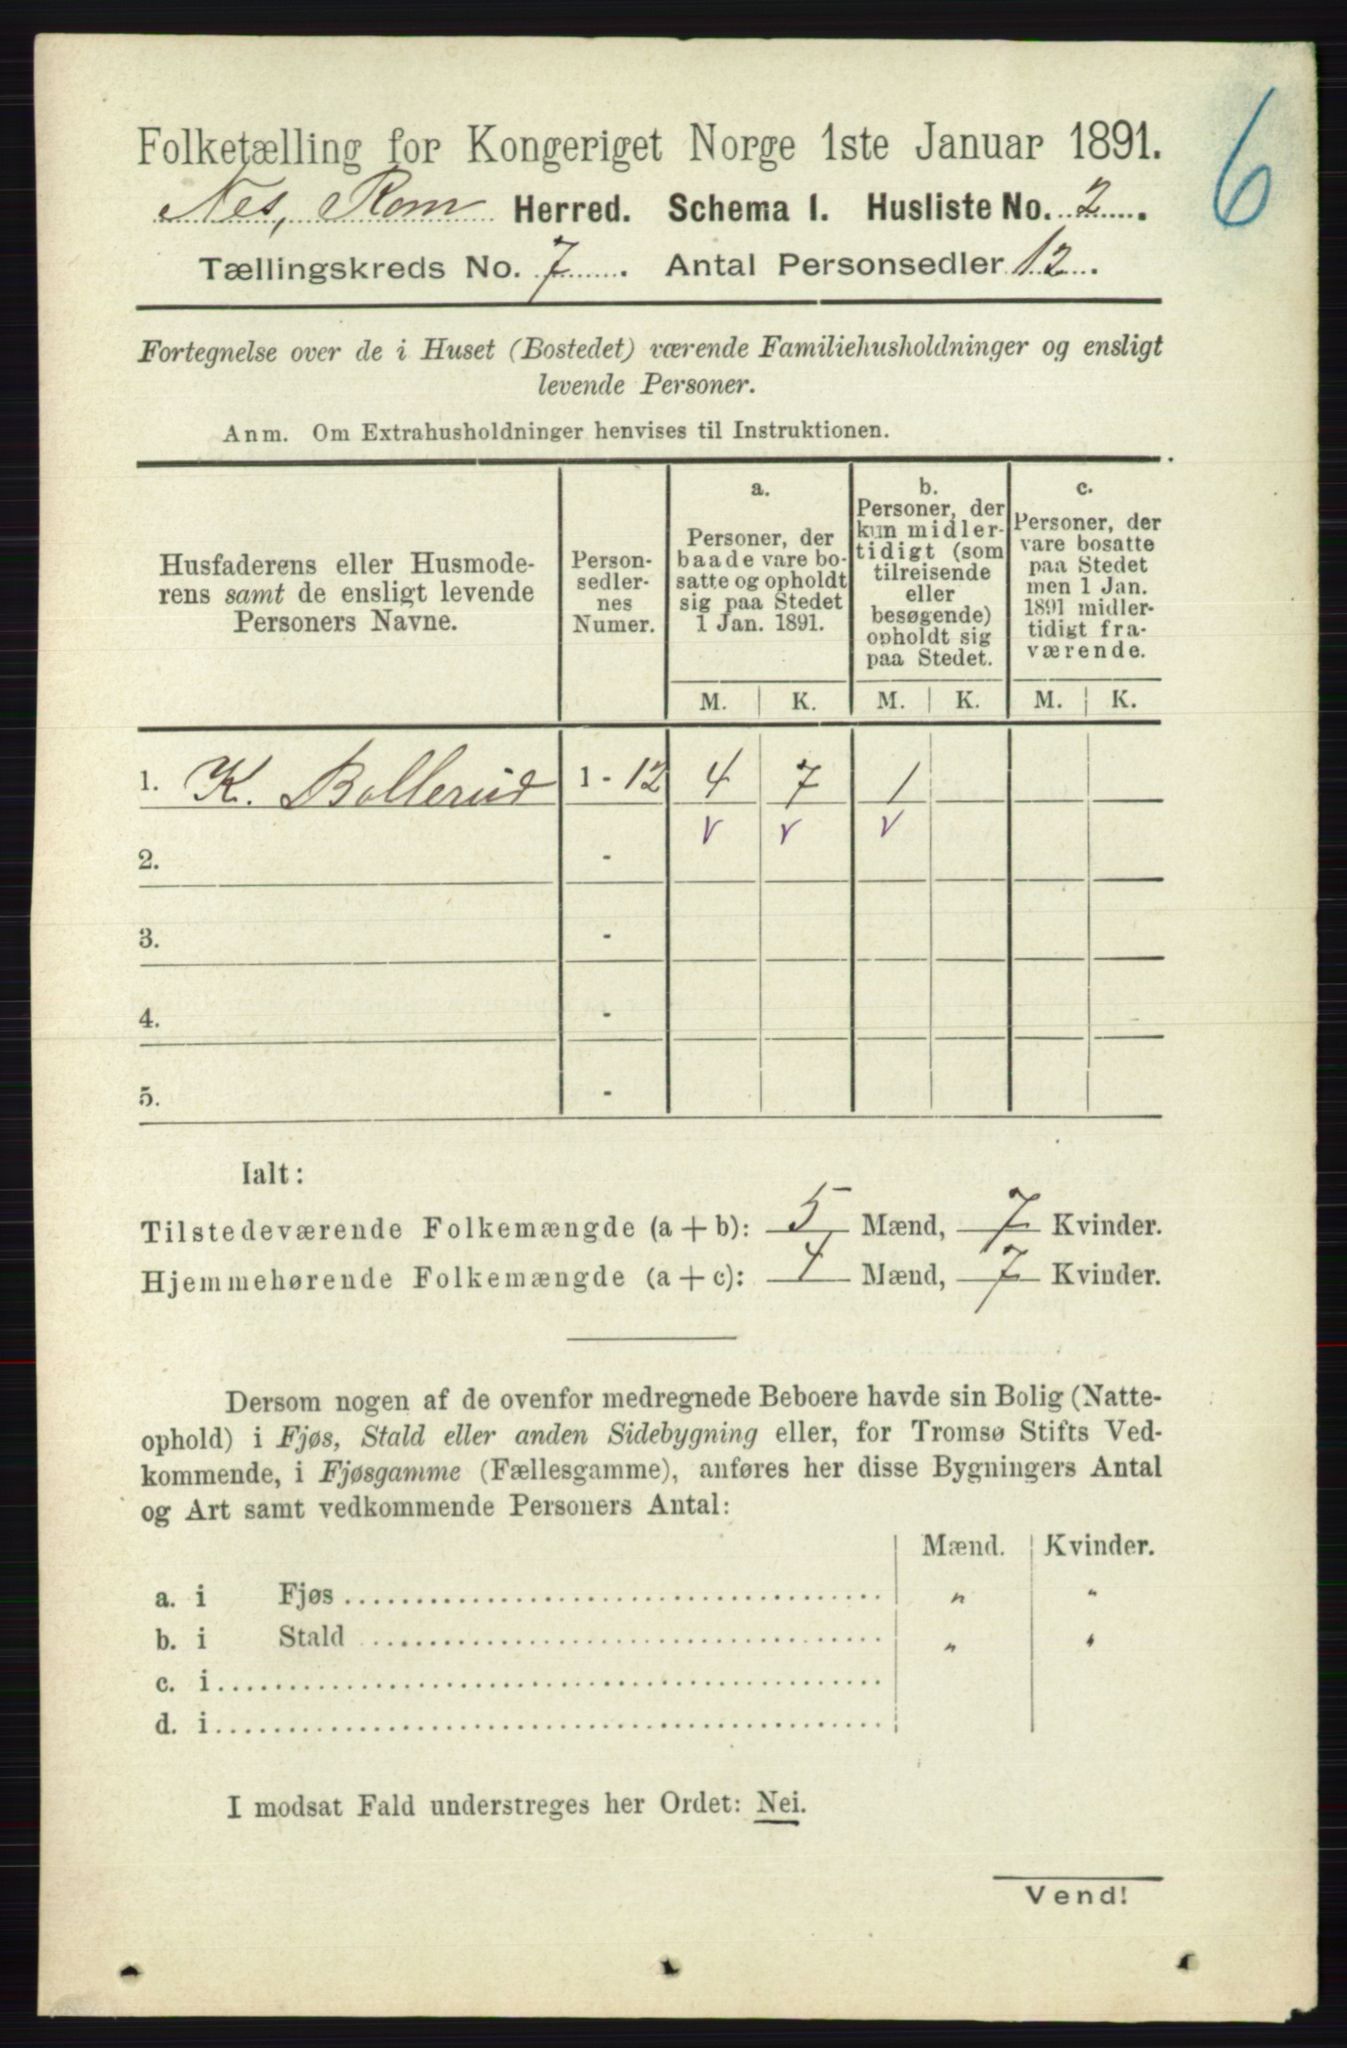 6
Folketælling for Kongeriget Norge 1ste Januar 1891.
Nes, Rom Herred. Schema I. Husliste No. 2.
Tællingskreds No. 7. Antal Personsedler 12.
Fortegnelse over de i Huset (Bostedet) værende Familiehusholdninger og ensligt
levende Personer.
Anm. Om Extrahusholdninger henvises til Instruktionen.
Husfaderens eller Husmode-
rens samt de ensligt levende
Personers Navne.
Person-
sedler-
nes
Numer.
a.
Personer, der
baade vare bo-
satte og opholdt
sig paa Stedet
1 Jan. 1891.
b.
Personer, der
kun midler-
tidigt (som
tilreisende
eller
besøgende)
opholdt sig
paa Stedet.
c.
Personer, der
vare bosatte
paa Stedet
men 1 Jan.
1891 midler-
tidigt fra-
værende.
M. K. M. K. M. K.
1. K. Bollerud 1 - 12 4 7 1
v v v
2. -
3. -
4. -
5. -
Ialt:
Tilstedeværende Folkemængde (a + b): 5 Mænd, 7 Kvinder.
Hjemmehørende Folkemængde (a + c): 4 Mænd, 7 Kvinder.
Dersom nogen af de ovenfor medregnede Beboere havde sin Bolig (Natte-
ophold) i Fjøs, Stald eller anden Sidebygning eller, for Tromsø Stifts Ved-
kommende, i Fjøsgamme (Fællesgamme), anføres her disse Bygningers Antal
og Art samt vedkommende Personers Antal:
Mænd. Kvinder.
a. i Fjøs " "
b. i Stald " "
c. i
d. i
I modsat Fald understreges her Ordet: Nei.
Vend!